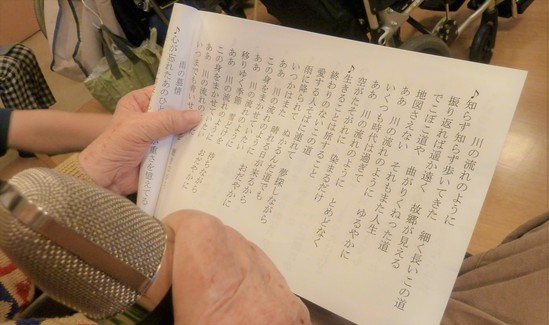 川の流れのように
♪知らず知らず歩いてきた 細く長いこの道
振り返れば遥か遠く 故郷が見える
でこぼこ道や 曲がりくねった道
地図さえない それもまた人生
ああ 川の流れのように ゆるやかに
いくつも時代は過ぎて
ああ 川の流れのように とめどなく
空がたそがれに 染まるだけ
♪生きることは 旅すること
終わりのない この道
愛する人 そばに連れて
夢探しながら
雨に降られて ぬかるんだ道でも
いつかはまた 晴れる日が来るから
ああ 川の流れのように おだやかに
この身をまかせて
ああ 川の流れのように
移りゆく季節
ああ 川の流れ
この身をまかせ
ああ 川の流れ おだやかに
いつまでも青い
♪心が忘れたあのひ 憶えてる